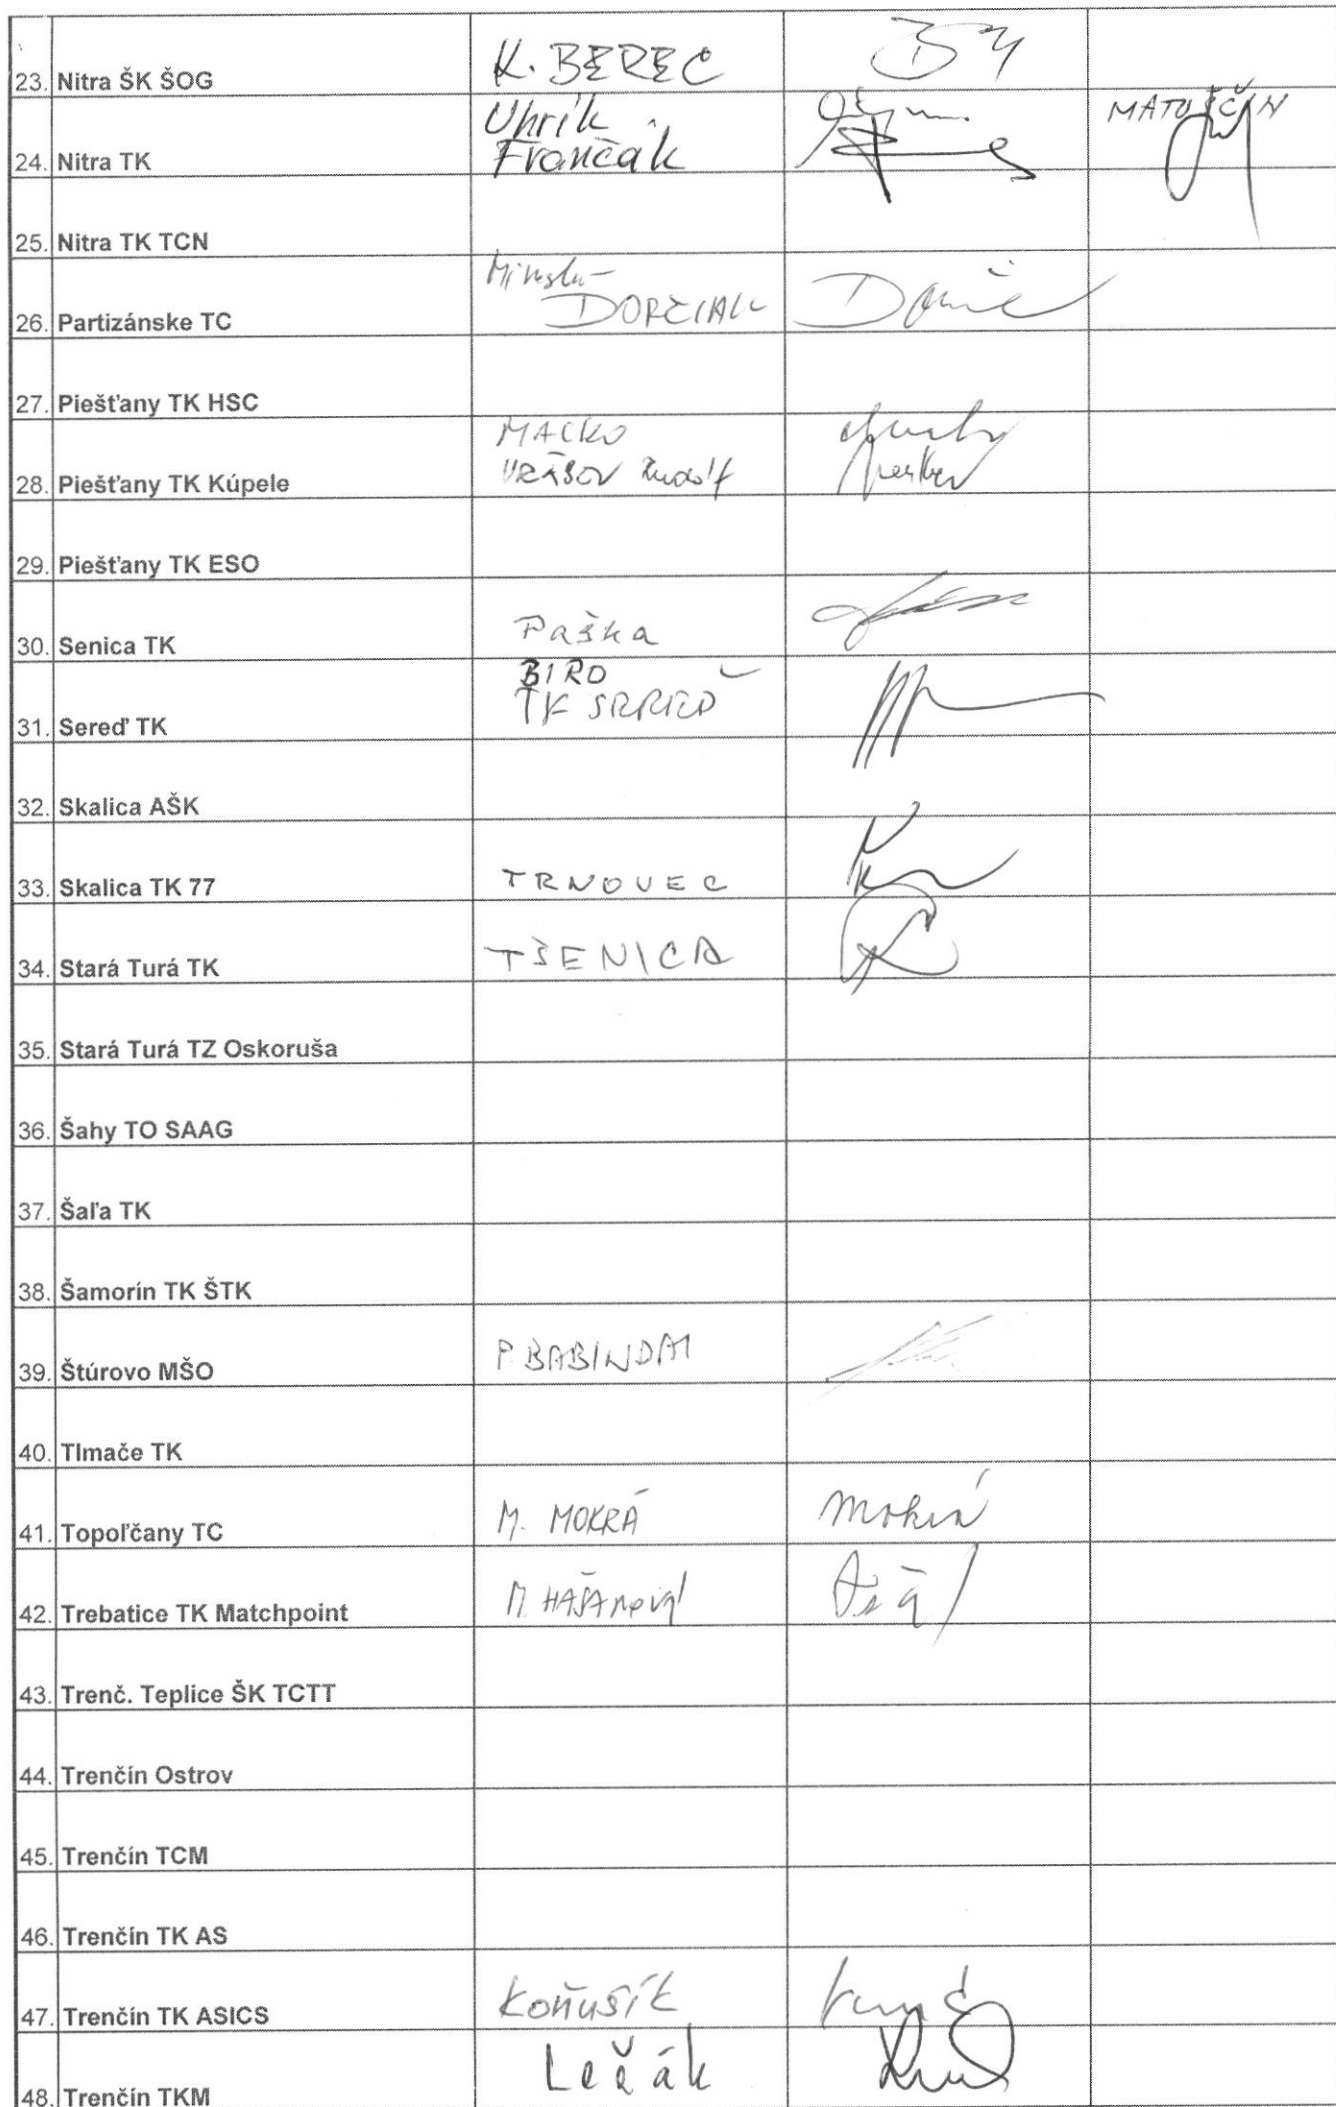 23. Nitra ŠK ŠOG K. BEREC
24. Nitra TK Uhrík
Frančák MATUŠČIN
25. Nitra TK TCN
26. Partizánske TC DORČIAK
27. Piešťany TK HSC
28. Piešťany TK Kúpele MACKO
Rudolf
29. Piešťany TK ESO
30. Senica TK Paška
31. Sereď TK BIRO
TK SEREĎ
32. Skalica AŠK
33. Skalica TK 77 TRNOVEC
34. Stará Turá TK TŠENICA
35. Stará Turá TZ Oskoruša
36. Šahy TO SAAG
37. Šaľa TK
38. Šamorín TK ŠTK
39. Štúrovo MŠO P. BABINDAI
40. Tlmače TK
41. Topoľčany TC M. MOKRÁ Mokrá
42. Trebatice TK Matchpoint M. HAŠANOVÁ
43. Trenč. Teplice ŠK TCTT
44. Trenčín Ostrov
45. Trenčín TCM
46. Trenčín TK AS
47. Trenčín TK ASICS Koňušík
48. Trenčín TKM Ležák